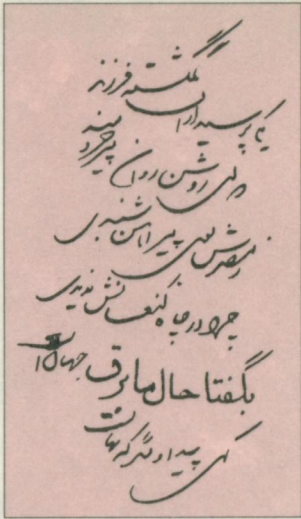 یکی پرسید از آن گمگشته فرزند
که ای روشن روان پیر خردمند
ز مصرش بوی پیراهن شنیدی
چرا در چاه کنعانش ندیدی
بگفتا حال ما برق جهان است
گهی پیدا و دیگر گه نهانست